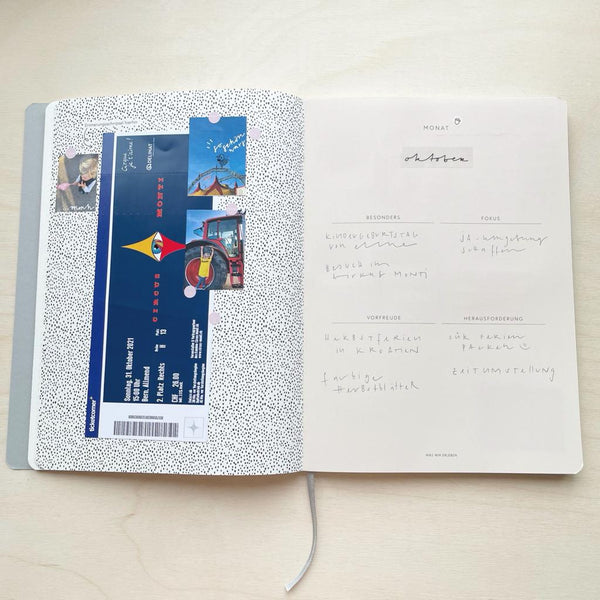 Cirque
je t'aime!
DELINAT
CIRCUS MONTI
Sonntag, 31. Oktober 2021
15:00 Uhr
Bern, Allmend
2. Platz Rechts
Reihe Platz
8 13
CHF 26.00
ticketcorner
MONAT
oktober
BESONDERS
KINDERGEBURTSTAG
von
BESUCH im
Zirkus MONTI
FOKUS
JA-umgebung
schaffen
VORFREUDE
HERBSTferien
in KROATIEN
farbige
Herbstblätter
HERAUSFORDERUNG
für FERIEN
PACKEN
ZEITUMSTELLUNG
WAS WIR ERLEBEN